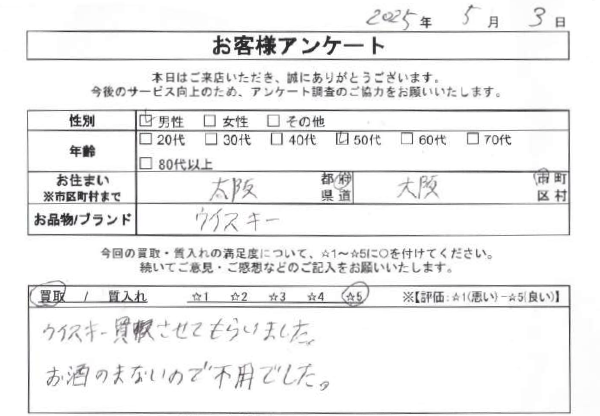 2025年 5月 3日
お客様アンケート
本日はご来店いただき、誠にありがとうございます。
今後のサービス向上のため、アンケート調査のご協力をお願いいたします。
性別 ☑男性 □女性 □その他
年齢 □20代 □30代 □40代 ☑50代 □60代 □70代
□80代以上
お住まい ※市区町村まで 大阪 都府県道 大阪 市町区村
お品物/ブランド ウイスキー
今回の買取・質入れの満足度について、☆1～☆5に○を付けてください。
続いてご意見・ご感想などのご記入をお願いいたします。
買取 / 質入れ ☆1 ☆2 ☆3 ☆4 ☆5 ※【評価:☆1(悪い)-☆5(良い)】
ウイスキー買取させてもらいました。
お酒のまないので不用でした。